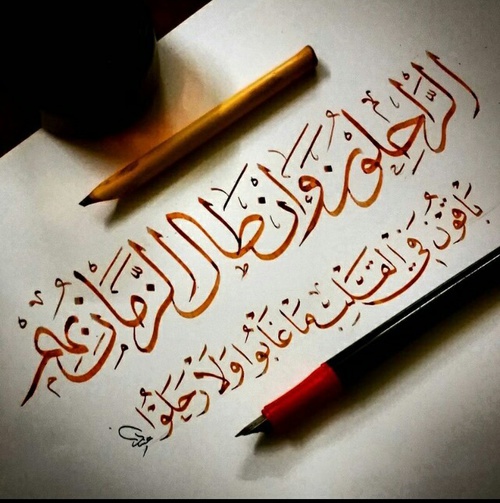 الرَّاحِلُونَ وَإِنْ طَالَ الزَّمَانُ بِهِمْ
بَاقُونَ فِي القَلْبِ مَا غَابُوا وَلَا رَحَلُوا